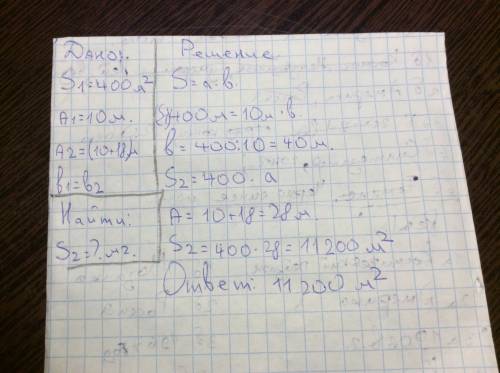 Дано:
S1=400м²
A1=10м.
A2=(10+18)м
b1=b2
Найти:
S2=?м2.
Решение
S=a·в.
400м=10м·в
в=400:10=40м.
S2=400·a
A=10+18=28м
S2=400·28=11200м²
Ответ: 11200м²